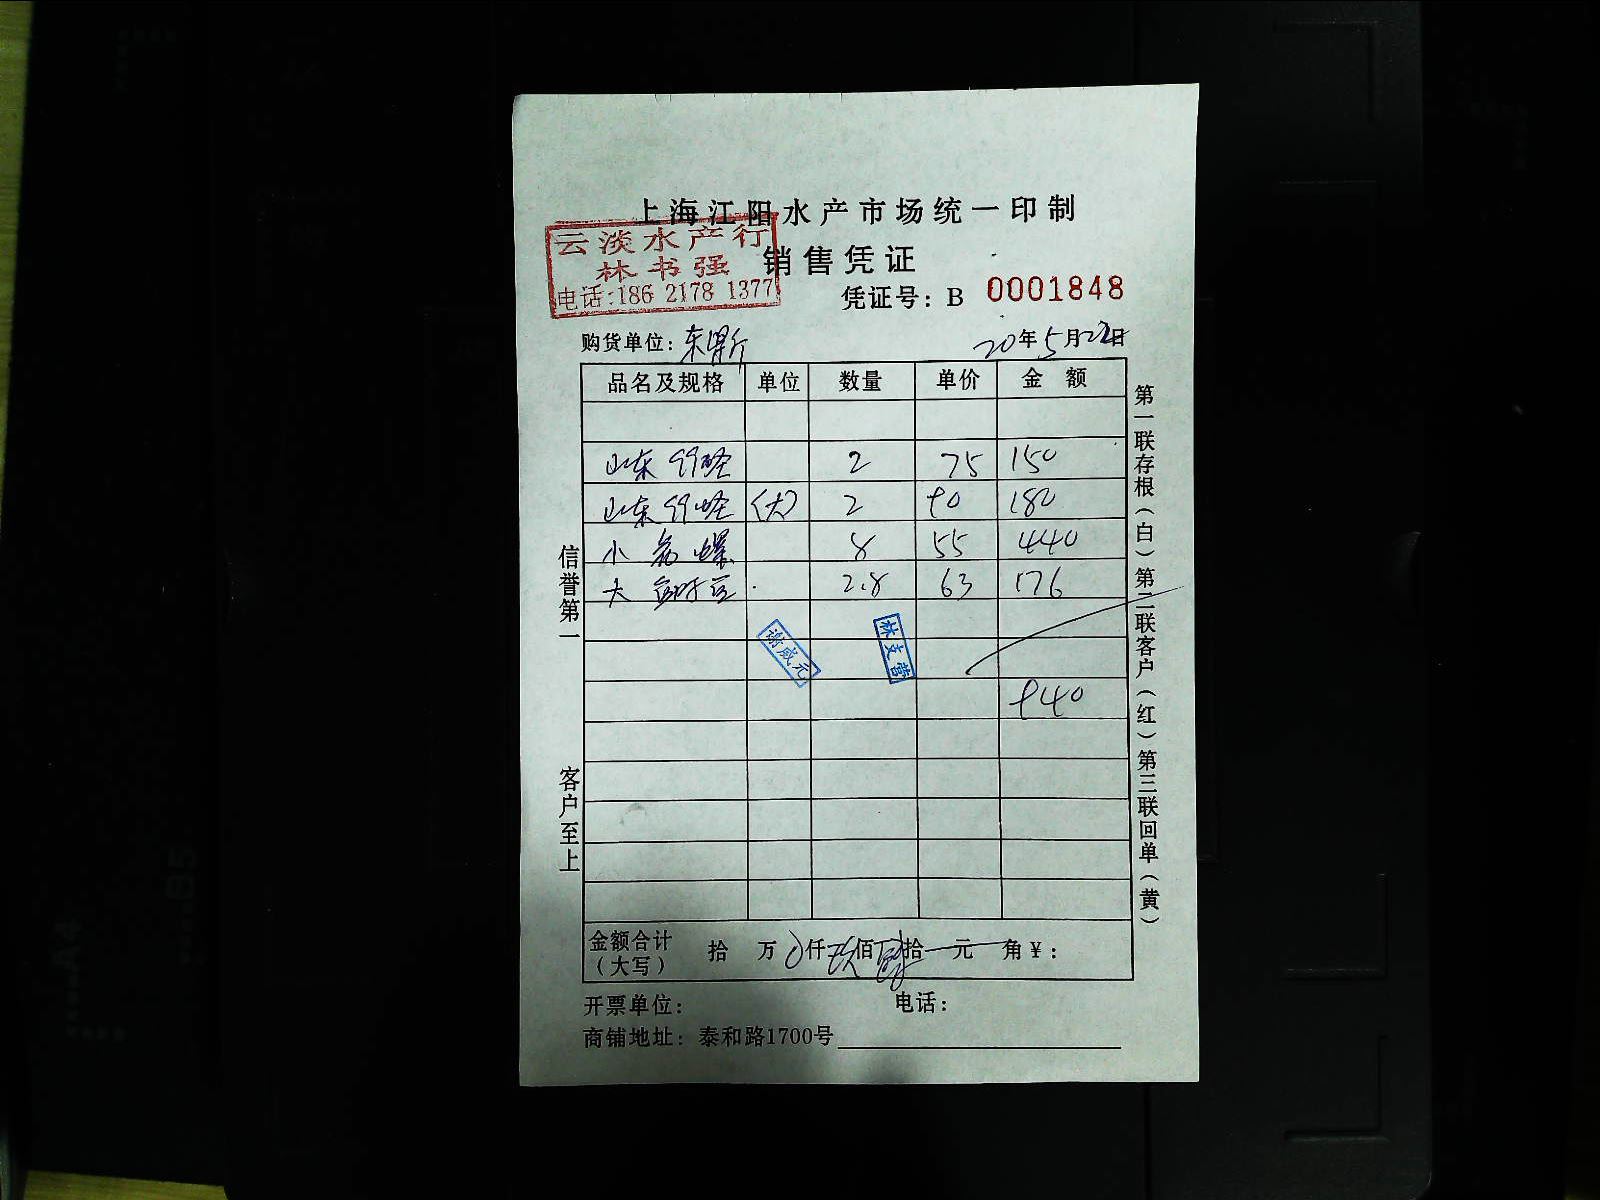 上海江阳水产市场统一印制
云淡水产行
林书强
电话:186 2178 1377
销售凭证
凭证号: B 0001848
购货单位:
20年5月22日
品名及规格 单位 数量 单价 金额
山东 2 75 150
山东 (大) 2 90 180
小 螺 8 55 440
大 2.8 63 176
谢成元
林支营
940
金额合计(大写) 拾 万 0仟 玖佰 肆拾 元 角 ¥:
开票单位: 电话:
商铺地址: 泰和路1700号
信誉第一 客户至上
第一联存根(白)第二联客户(红)第三联回单(黄)